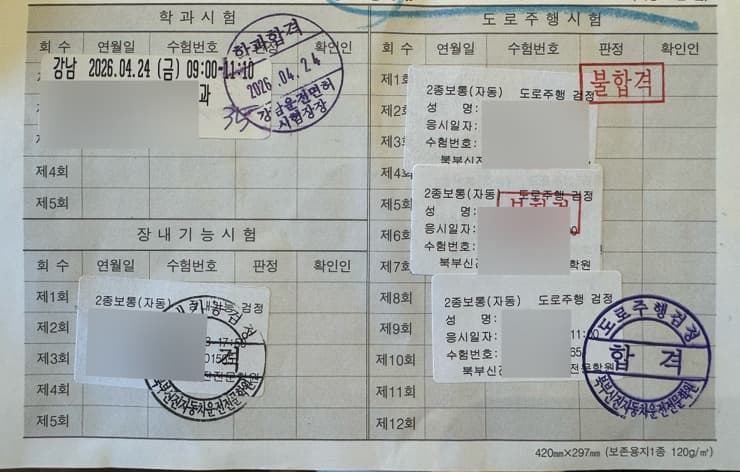 학 과 시 험
회 수 연월일 수험번호 판정 확인인
강남 2026.04.24 (금) 09:00-11:10
과
학과합격
2026.04.24
강남운전면허
시험장장
35
제4회
제5회
장 내 기 능 시 험
회 수 연월일 수험번호 판정 확인인
제1회
2종보통(자동) 장내기능 검정
제2회
제3회
격
제4회
북부신진자동차운전전문학원
제5회
도 로 주 행 시 험
회 수 연월일 수험번호 판정 확인인
제1회
2종보통(자동) 도로주행 검정
불합격
제2
성 명:
응시일자:
제3
수험번호:
북부신진
제4회
제5
2종보통(자동) 도로주행 검정
성 명:
불합격
제6
응시일자:
수험번호:
제7
북부신진
학원
제8회
2종보통(자동) 도로주행 검정
제9회
성 명:
응시일자:
제10회
수험번호:
북부신진
전문학원
도로주행검정
합 격
북부신진자동차운전전문학원
제11회
제12회
420㎜×297㎜ (보존용지1종 120g/㎡)